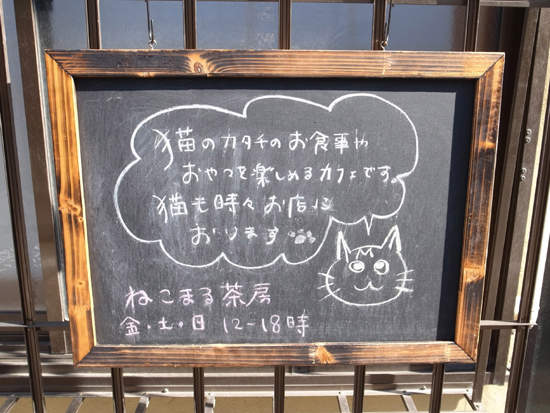 猫のカタチのお食事や
おやつを楽しめるカフェです。
猫も時々お店に
おります
ねこまる茶房
金・土・日 12-18時